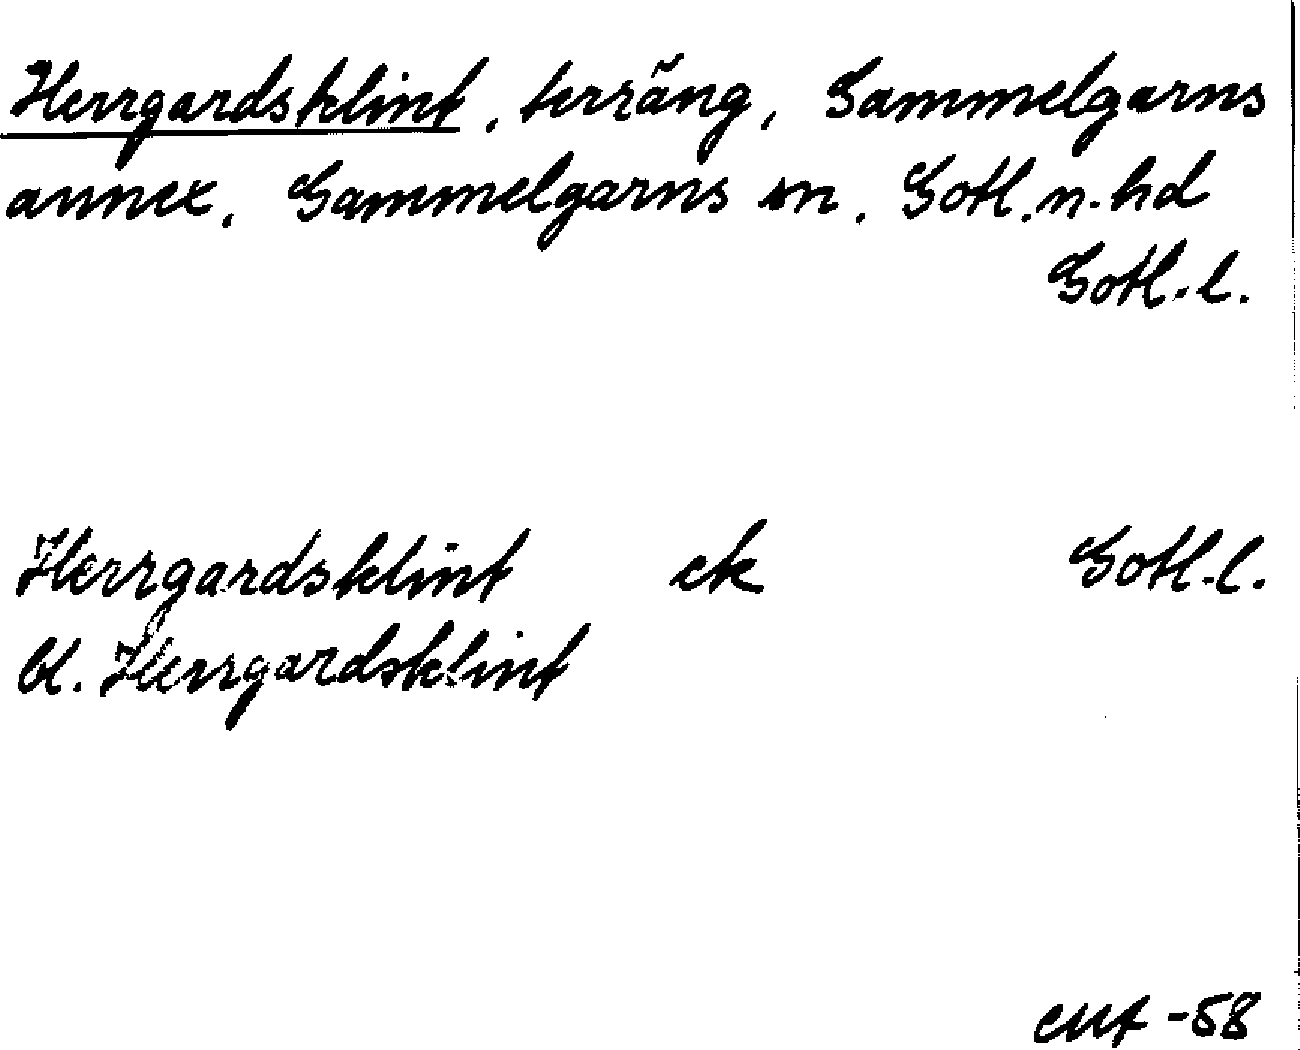 Herrgardsklint, terräng, Gammelgarns
annex, Gammelgarns sn, Gotl. n. hd
Gotl. l.
Herrgardsklint ek Gotl. l.
bl. Herrgardsklint
-58